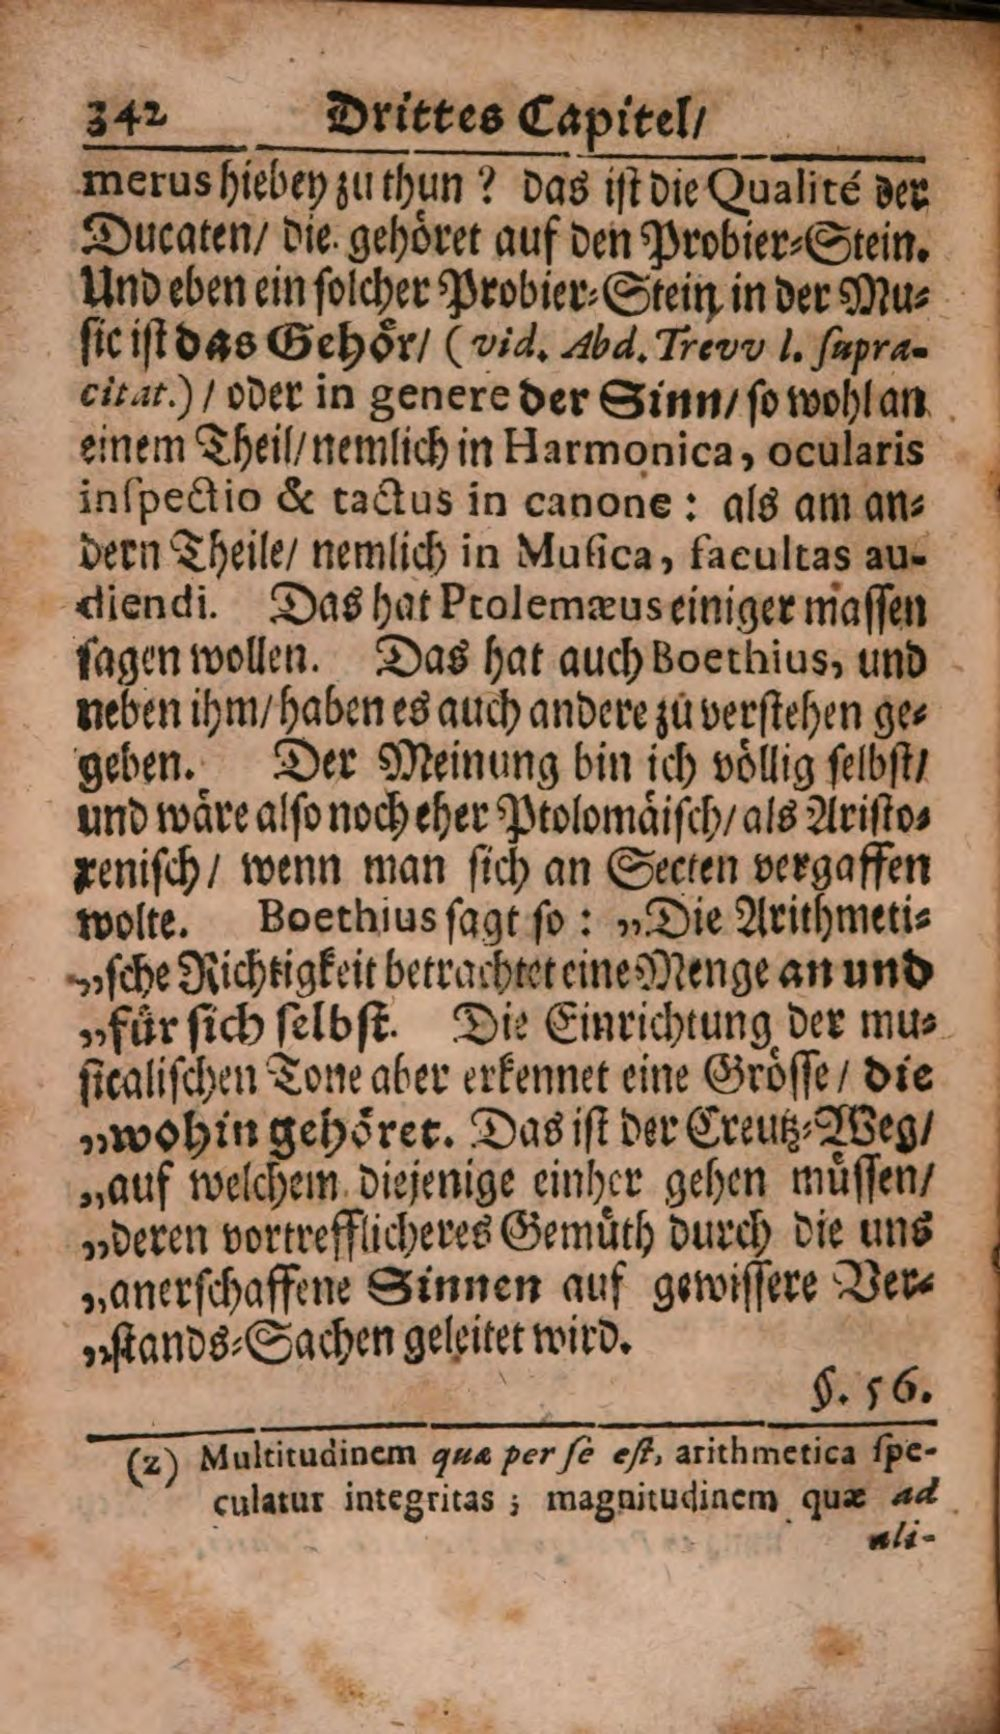 342 Drittes Capitel/
merus hiebey zu thun? das ist die Qualité der
Ducaten/ die gehöret auf den Probier-Stein.
Und eben ein solcher Probier-Stein in der Mu-
sic ist das Gehör/ (vid. Abd. Trevv l. supra-
citat.) / oder in genere der Sinn/ so wohl an
einem Theil/ nemlich in Harmonica, ocularis
inspectio & tactus in canone: als am an-
dern Theile/ nemlich in Musica, facultas au-
diendi. Das hat Ptolemæus einiger massen
sagen wollen. Das hat auch Boethius, und
neben ihm/ haben es auch andere zu verstehen ge-
geben. Der Meinung bin ich völlig selbst/
und wäre also noch eher Ptolomäisch/ als Aristo-
xenisch/ wenn man sich an Secten vergaffen
wolte. Boethius sagt so: „Die Arithmeti-
„sche Richtigkeit betrachtet eine Menge an und
„für sich selbst. Die Einrichtung der mu-
sicalischen Tone aber erkennet eine Grösse/ die
„wohin gehöret. Das ist der Creutz-Weg/
„auf welchem diejenige einher gehen müssen/
„deren vortrefflicheres Gemüth durch die uns
„anerschaffene Sinnen auf gewissere Ver-
„stands-Sachen geleitet wird.
§. 56.
(z) Multitudinem quæ per se est, arithmetica spe-
culatur integritas; magnitudinem quæ ad
ali-